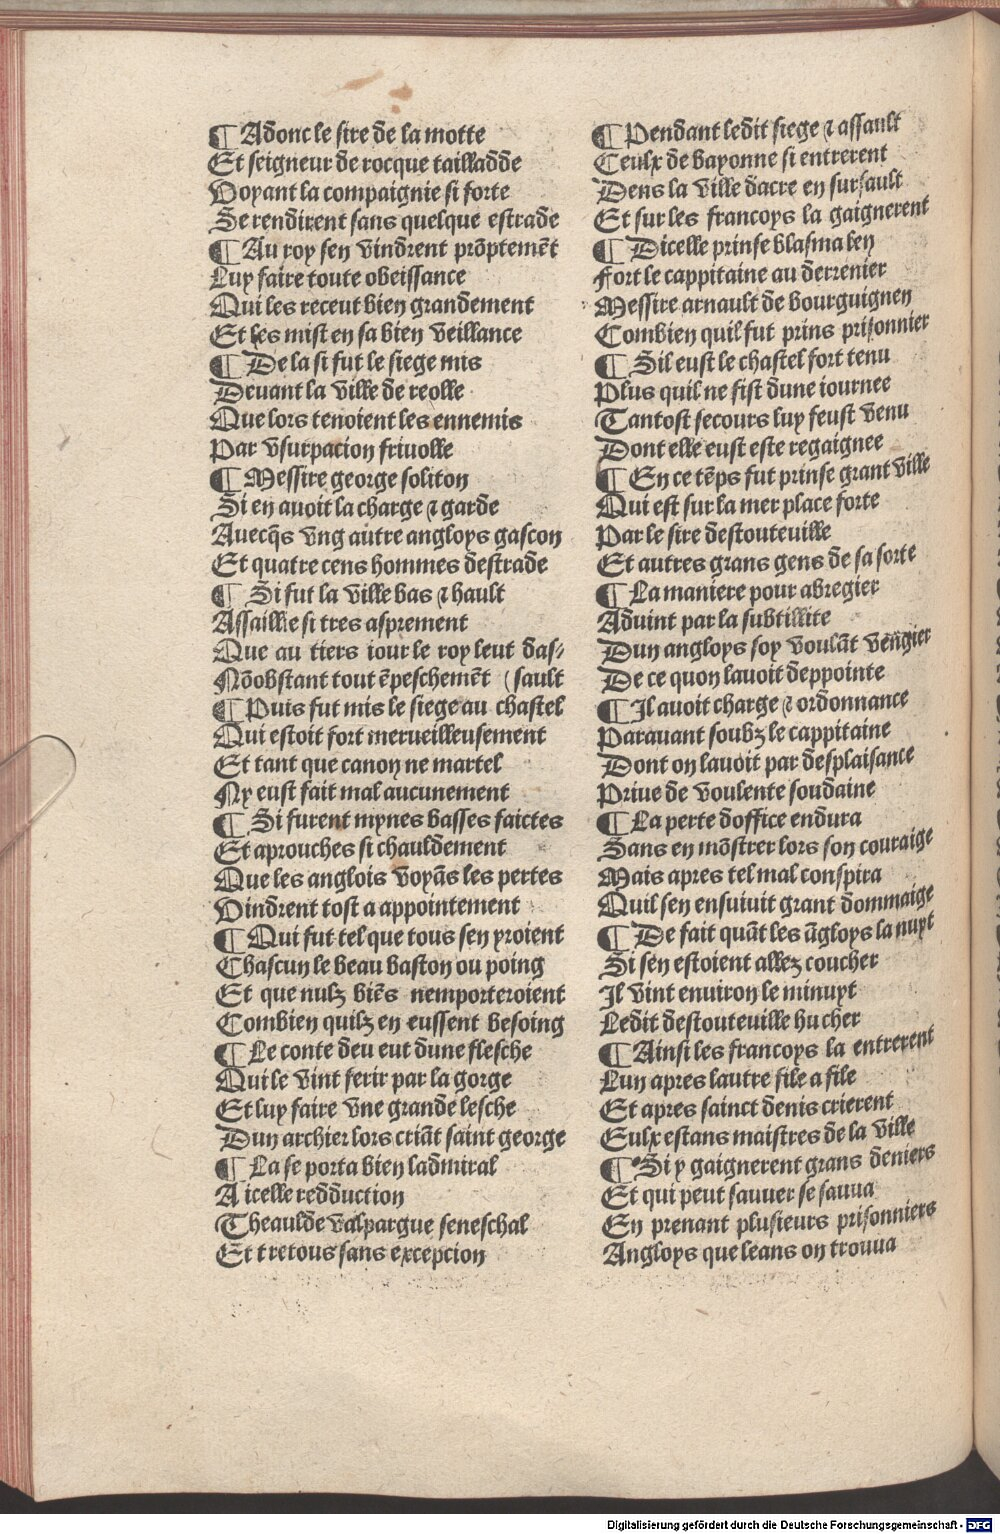 ¶ Adonc le sire de la motte
Et seigneur de rocque tailladde
Voyant la compaignie si forte
Se rendirent sans quelque estrade
¶ Au roy sen vindrent prōptemēt
Luy faire toute obeissance
Qui les receut bien grandement
Et les mist en sa bien veillance
¶ De la si fut le siege mis
Devant la ville de reolle
Que lors tenoient les ennemis
Par vsurpacion friuolle
¶ Messire george soliton
Si en auoit la charge ⁊ garde
Auecq̄s vng autre angloys gascon
Et quatre cens hommes destrade
¶ Si fut la ville bas ⁊ hault
Assaillie si tres asprement
Que au tiers iour le roy leut das/
Nōobstant tout ēpeschemēt (sault
¶ Puis fut mis le siege au chastel
Qui estoit fort merueilleusement
Et tant que canon ne martel
Ny eust fait mal aucunement
¶ Si furent mynes basses faictes
Et aprouches si chauldement
Que les anglois voyās les pertes
Vindrent tost a appointement
¶ Qui fut tel que tous sen yroient
Chascun le beau baston ou poing
Et que nulz biēs nemporteroient
Combien quilz en eussent besoing
¶ Le conte deu eut dune flesche
Qui le vint ferir par la gorge
Et luy faire vne grande lesche
Dun archier lors criāt saint george
¶ La se porta bien ladmiral
A icelle redduction
Theaulde valpargue seneschal
Et tretous sans excepcion
¶ Pendant ledit siege ⁊ assault
Ceulx de bayonne si entrerent
Dens la ville dacre en sursault
Et sur les francoys la gaignerent
¶ Dicelle prinse blasma len
Fort le cappitaine au derrenier
Messire arnault de bourguignen
Combien quil fut prins prisonnier
¶ Sil eust le chastel fort tenu
Plus quil ne fist dune iournee
Tantost secours luy feust venu
Dont elle eust este regaignee
¶ En ce tēps fut prinse grant ville
Qui est sur la mer place forte
Par le sire destouteuille
Et autres grans gens de sa sorte
¶ La maniere pour abregier
Aduint par la subtillite
Dun angloys soy voulāt vengier
De ce quon lauoit deppointe
¶ Il auoit charge ⁊ ordonnance
Parauant soubz le cappitaine
Dont on lauoit par desplaisance
Priue de voulente soudaine
¶ La perte doffice endura
Sans en mōstrer lors son couraige
Mais apres tel mal conspira
Quil sen ensuiuit grant dommaige
¶ De fait quāt les āgloys la nuyt
Si sen estoient allez coucher
Il vint enuiron le minuyt
Ledit destouteuille hucher
¶ Ainsi les francoys la entrerent
Lun apres lautre file a file
Et apres sainct denis crierent
Eulx estans maistres de la ville
¶ Si y gaignerent grans deniers
Et qui peut sauuer se sauua
En prenant plusieurs prisonniers
Angloys que leans on trouua
Digitalisierung gefördert durch die Deutsche Forschungsgemeinschaft - DFG